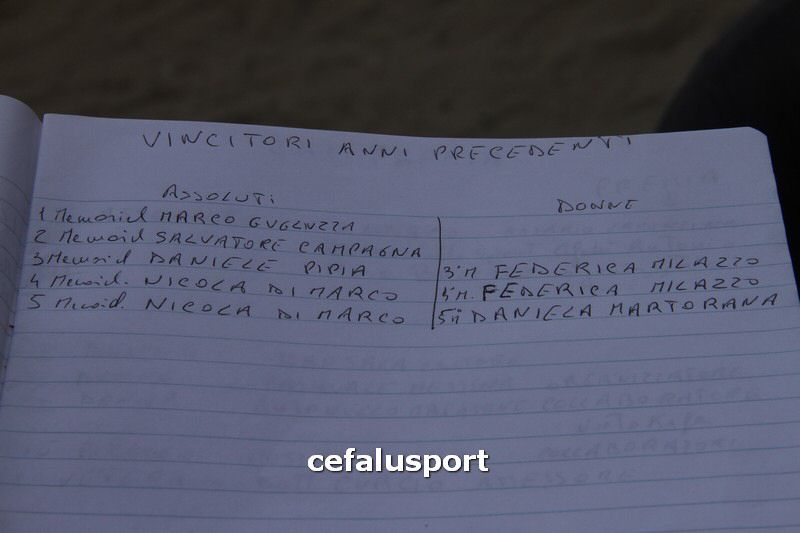 VINCITORI ANNI PRECEDENTI
ASSOLUTI
1 Memorial MARCO GUGLIUZZA
2 Memorial SALVATORE CAMPAGNA
3 Memorial DANIELE PIPIA
4 Memorial. NICOLA DI MARCO
5 Memorial. NICOLA DI MARCO
DONNE
3°M FEDERICA MILAZZO
4°M. FEDERICA MILAZZO
5°M DANIELA MARTORANA
cefalusport